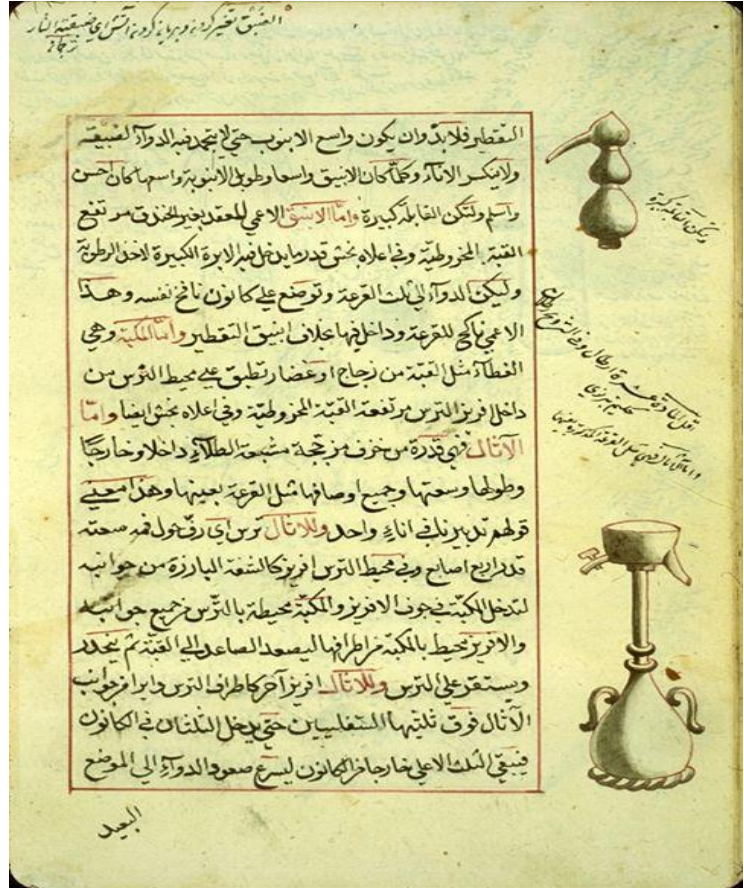 التقطير فلا بدّ وان يكون واسع الانبوب حتي لا يتجمد فيه الدوآء لضيقه
ولا ينكسر الاناء وكلما كان الانبيق واسعا وطويل الانبوبة واسعها كان احسن
واسلم ولتكن القابلة كبيرة واما الانبيق الاعمي للعقد بغير الخندق مرتفع
القبة المخروطية وفي اعلاه بخش قدر ما يدخل فيه الابرة الكبيرة لاخذ الرطوبة
وليكن الدوآء الي ثلث القرعة وتوضع علي كانون نافخ نفسه وهذا
الاعمي ناكح للقرعة وداخل فيها بخلاف انبيق التقطير واما المكبة وهي
الغطآء مثل القبة من زجاج او غضار تطبق علي محيط الترس من
داخل افريز الترس مرتفعة القبة المخروطية وفي اعلاه بخش ايضا واما
الآثال فهي قدرة من خزف مزججة مشبعة الطلآء داخلا وخارجا
وطولها وسعتها وجميع اوصافها مثل القرعة بعينها وهذا معني
قولهم تدبيرنا في اناء واحد وللاثال ترس اي رف حول فمه سعته
قدر اربع اصابع وفي محيط الترس افريز كالشفة البارزة من جوانبه
لتدخل المكبة في جوف الافريز والمكبة محيطة بالترس من جميع جوانبه
والافريز محيط بالمكبة من اطرافها ليصعد الصاعد الي القبة ثم ينحدر
ويستقر علي الترس وللاثال افريز آخر كاطراف الترس دايرا من جوانب
الآثال فوق ثلثيها السفليين حتي يدخل الثلثان في الكانون
فيبقي الثلث الاعلي خارجا من الكانون ليسرع صعود الدوآء الي الموضع
البعيد
ولتكن القابلة كبيرة